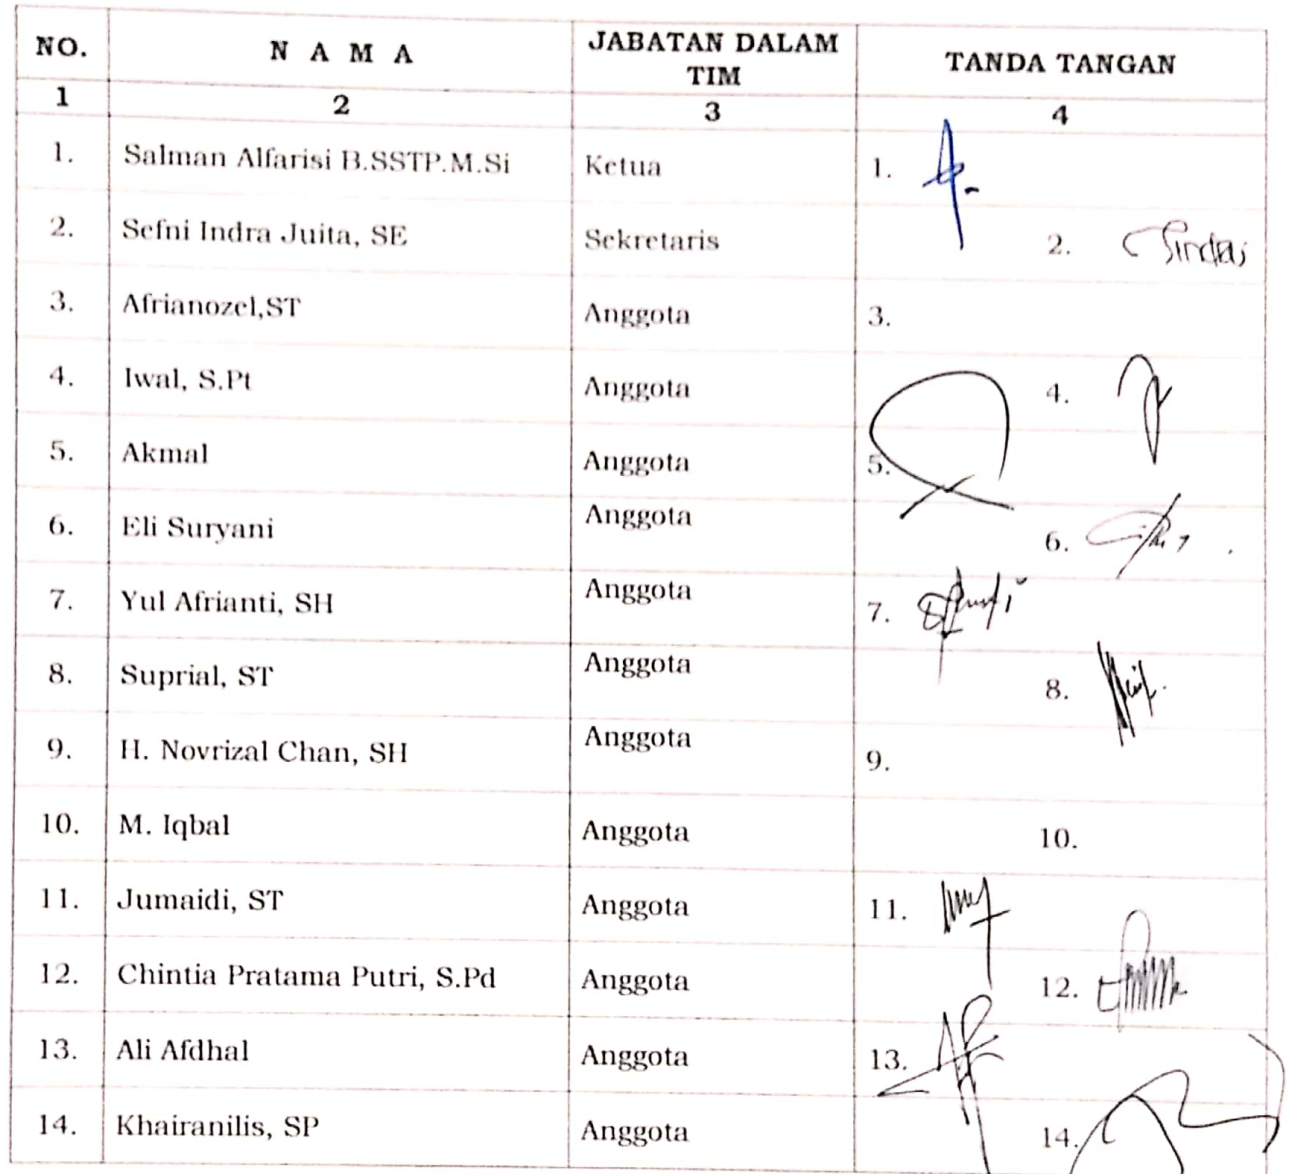 NO. N A M A JABATAN DALAM TIM TANDA TANGAN
1 2 3 4
1. Salman Alfarisi B.SSTP.M.Si Ketua 1.
2. Sefni Indra Juita, SE Sekretaris 2.
3. Afrianozel,ST Anggota 3.
4. Iwal, S.Pt Anggota 4.
5. Akmal Anggota 5.
6. Eli Suryani Anggota 6.
7. Yul Afrianti, SH Anggota 7.
8. Suprial, ST Anggota 8.
9. H. Novrizal Chan, SH Anggota 9.
10. M. Iqbal Anggota 10.
11. Jumaidi, ST Anggota 11.
12. Chintia Pratama Putri, S.Pd Anggota 12.
13. Ali Afdhal Anggota 13.
14. Khairanilis, SP Anggota 14.